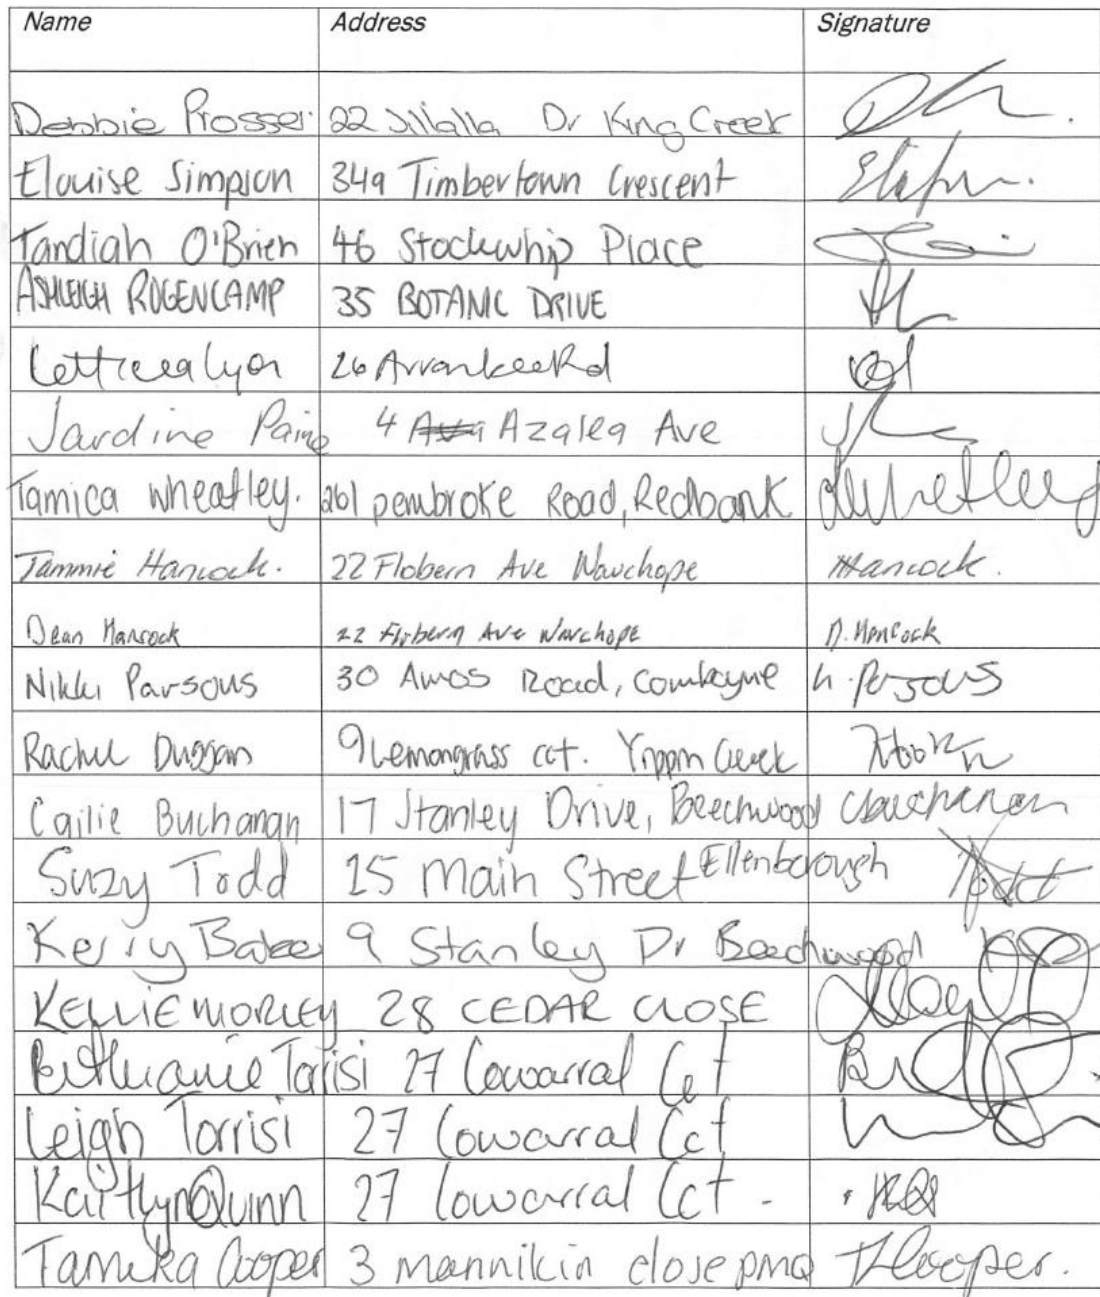 Name Address Signature
Debbie Prosser 22 Jillalla Dr King Creek
Elouise Simpson 349 Timbertown Crescent
Tandiah O'Brien 46 Stockwhip Place
ASHLEIGH ROGENCAMP 35 BOTANIC DRIVE
Letticea Lyon 26 Arrankee Rd
Jardine Paine 4 Azalea Ave
Tamica Wheatley. 261 pembroke Road, Redbank
Tammie Hancock. 22 Flobern Ave Wauchope Hancock.
Dean Hancock 22 Flobern Ave Wauchope D. Hancock
Nikki Parsons 30 Amos Road, Comboyne N. Parsons
Rachel Duggan 9 Lemongrass cct.
Cailie Buchanan 17 Stanley Drive, Beechwood CBuchanan
Suzy Todd 15 Main Street Ellenborough
Kerry Baker 9 Stanley Dr Beechwood
KELLIE MORLEY 28 CEDAR CLOSE
Bethanie Torrisi 27 Cowarral Cct
Leigh Torrisi 27 Cowarral Cct
Kaitlyn Quinn 27 Cowarral Cct - KQ
Tamika Cooper 3 mannikin close pmq TCooper.